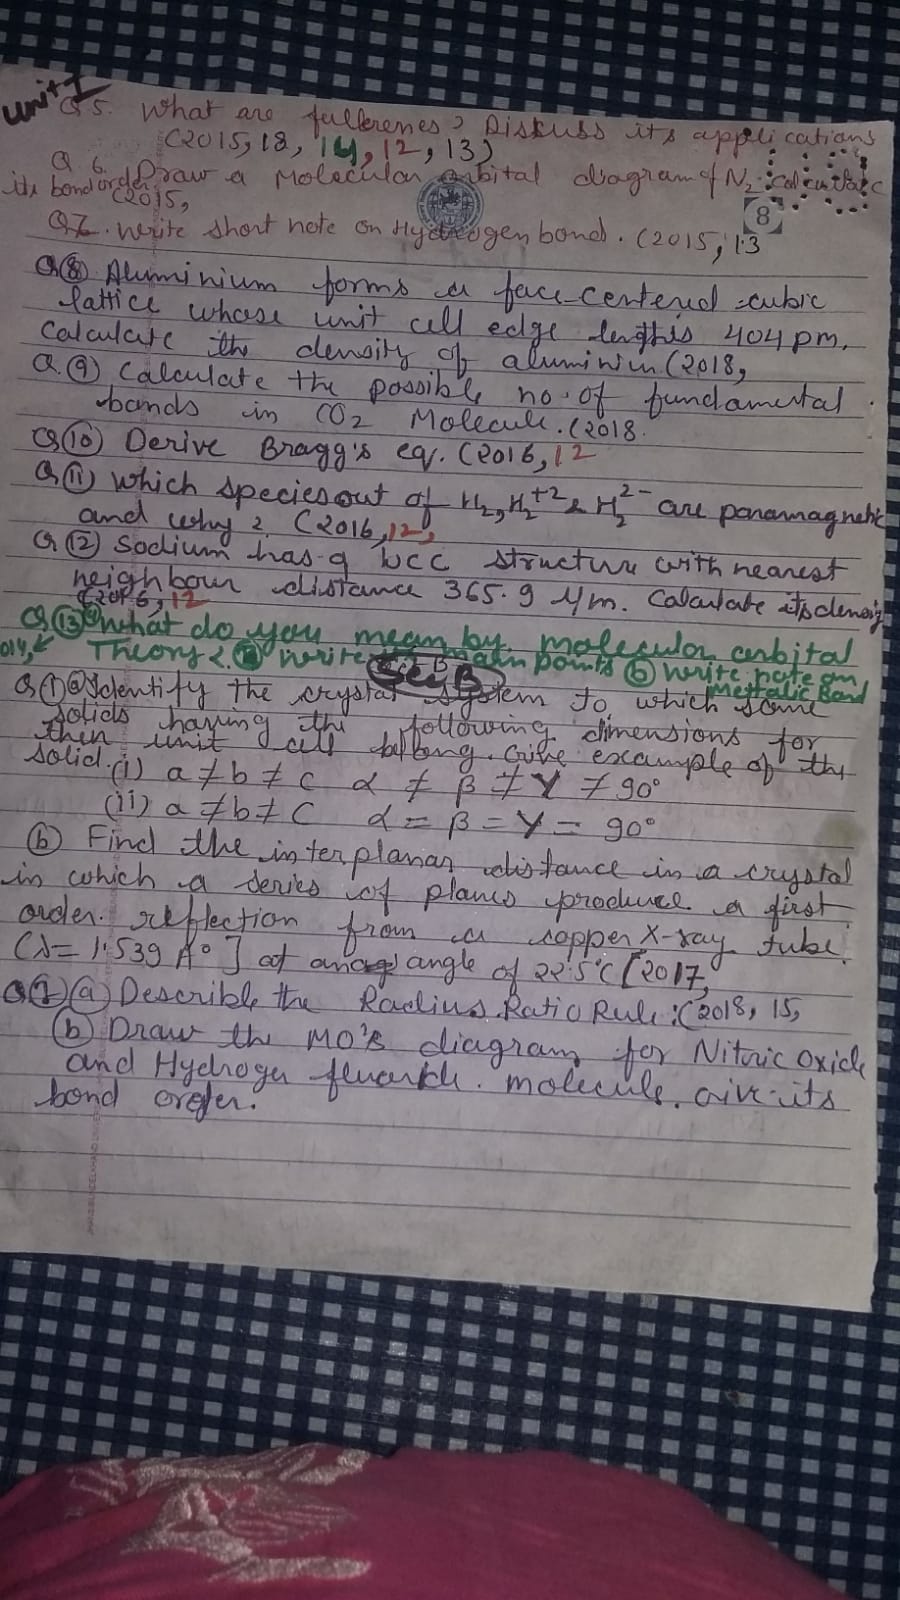 unit I
Q5. What are fullerenes? Discuss its applications
(2015, 18, 14, 12, 13)
Q 6. Draw a Molecular orbital diagram of N2. Calculate
its bond order (2015,
8
Q7. Write short note on Hydrogen bond. (2015, 13
Q(8) Aluminium forms a face-centered cubic
lattice whose unit cell edge length is 404 pm.
Calculate the density of aluminium (2018,
Q.(9) Calculate the possible no. of fundamental
bands in CO2 Molecule. (2018.
Q(10) Derive Bragg's eq. (2016, 12
Q(11) Which species out of H2, H2+2 & H2 2- are paramagnetic
and why? (2016, 12,
Q(12) Sodium has a bcc structure with nearest
neighbour distance 365.9 μm. Calculate its density
(2016, 12
Q(13) (a) What do you mean by molecular orbital
014, Theory? Write its main points (b) Write note on
Mettalic Bond
Sec B
Q(1)(a) Identify the crystal system to which some
solids having the following dimensions for
then unit cell belong. Give example of the
solid. (i) a ≠ b ≠ c α ≠ β ≠ γ ≠ 90°
(ii) a ≠ b ≠ C α = β = γ = 90°
(b) Find the interplanar distance in a crystal
in which a series of planes produce a first
order reflection from a copper X-ray tube
(λ = 1.539 A°] at an angle of 22.5°C [2017,
Q(2)(a) Describle the Radius Ratio Rule: (2018, 15,
(b) Draw the MO's diagram for Nitric oxide
and Hydrogen molecule. Give its
bond order.